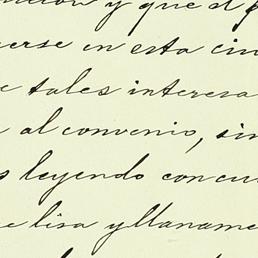 y que el p
erse en esta ciu
e tales interesa
al convenio, sin
s leyendo concu
e lisa y llaname